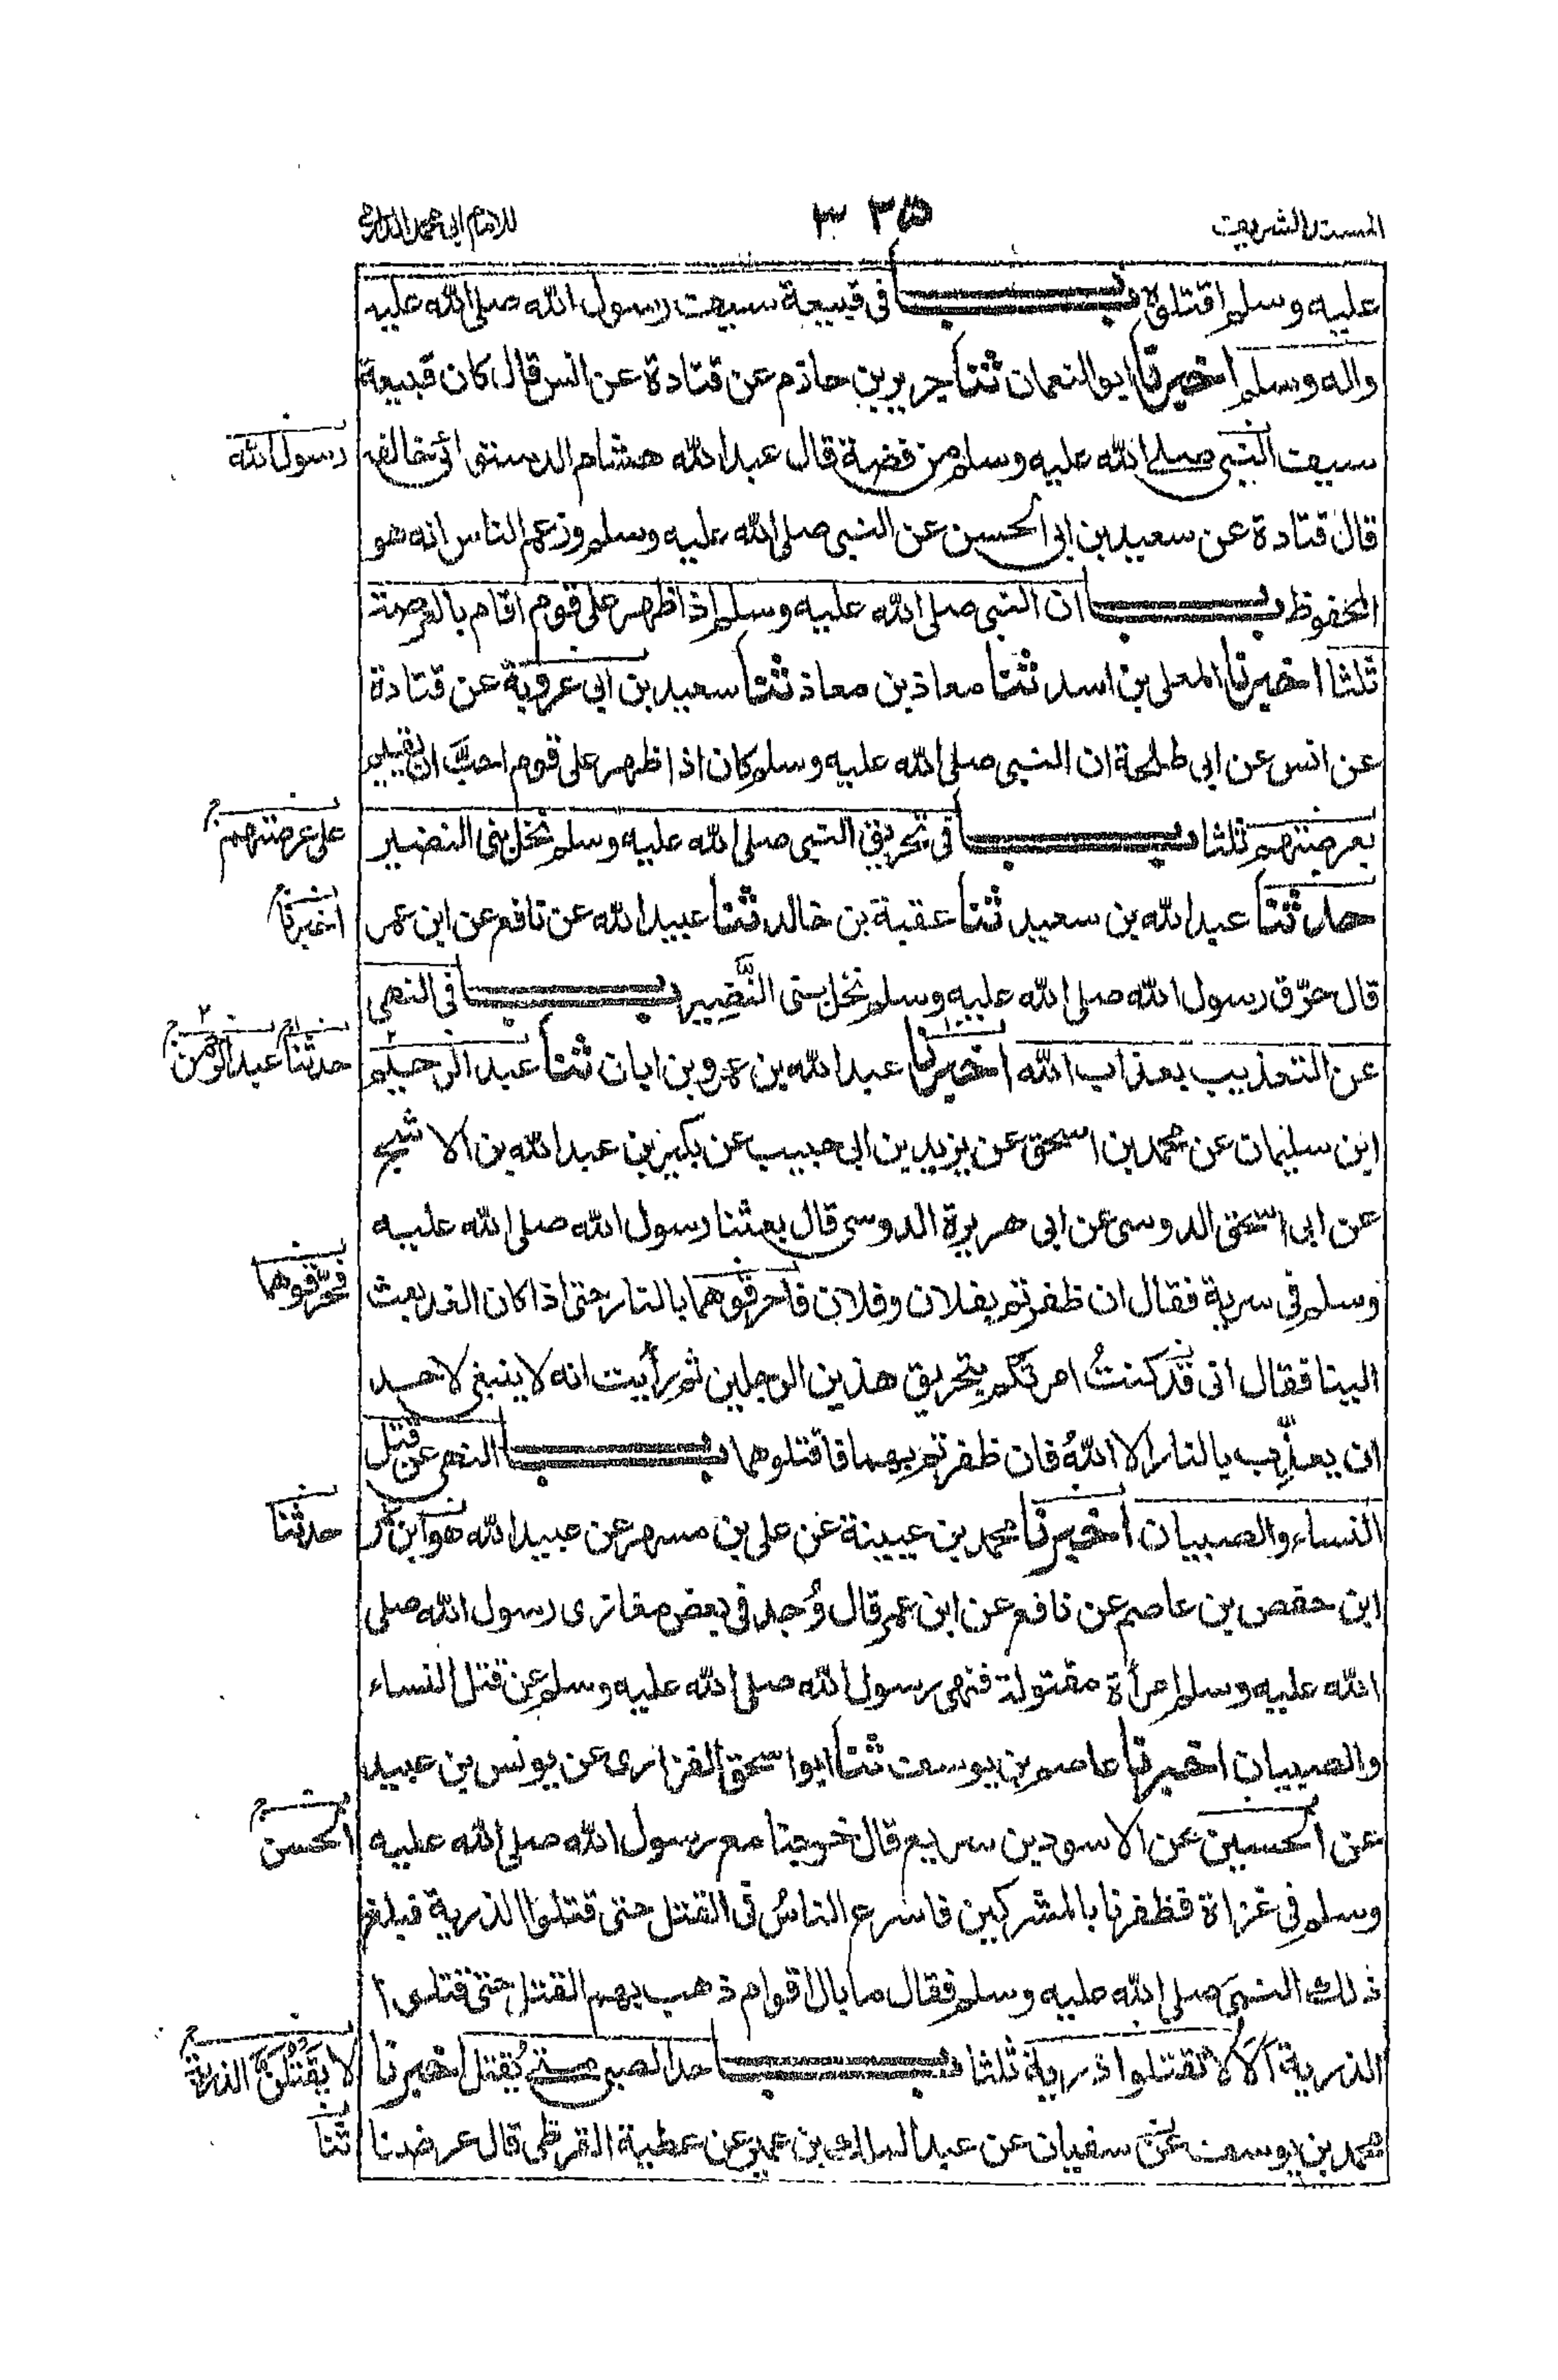 المسند الشريف
٣٣٥
للامام ابى محمد الدارمى
عليه وسلم اقتلوه باب فى قبيعة سيف رسول الله صلى الله عليه
واله وسلم اخبرنا ابو النعمان ثنا جرير بن حازم عن قتادة عن انس قال كان قبيعة
سيف النبى صلى الله عليه وسلم من فضة قال عبد الله هشام الدستوائى خالفه
رسول الله
قال قتادة عن سعيد بن ابى الحسن عن النبى صلى الله عليه وسلم وزعم الناس انه هو
المحفوظ باب ان النبى صلى الله عليه وسلم اذا ظهر على قوم اقام بالعرصة
ثلثا اخبرنا المعلى بن اسد ثنا معاذ بن معاذ ثنا سعيد بن ابى عروبة عن قتادة
عن انس عن ابى طلحة ان النبى صلى الله عليه وسلم كان اذا ظهر على قوم احبّ ان يقيم
بعرصتهم ثلثا باب فى تحريق النبى صلى الله عليه وسلم نخل بنى النضير
على عرصتهم
حدثنا عبد الله بن سعيد ثنا عقبة بن خالد ثنا عبيد الله عن نافع عن ابن عمر
اخبرنا
قال حرّق رسول الله صلى الله عليه وسلم نخل بنى النَّضِير باب فى النهى
عن التعذيب بعذاب الله اخبرنا عبد الله بن عمرو بن ابان ثنا عبد الرحيم
حدثنا عبد الرحمن
ابن سليمان عن محمد بن اسحق عن يزيد بن ابى حبيب عن بكير بن عبد الله بن الاشج
عن ابى اسحق الدوسى عن ابى هريرة الدوسى قال بعثنا رسول الله صلى الله عليه
وسلم فى سرية فقال ان ظفرتم بفلان وفلان فاحرقوهما بالنار حتى اذا كان الغد بعث
فحرّقوهما
الينا فقال انى قد كنتُ امرتكم بتحريق هذين الرجلين ثم رأيت انه لا ينبغى لاحد
ان يعذِّب بالنار الا اللهُ فان ظفرتم بهما فاقتلوهما باب النهى عن قتل
النساء والصبيان اخبرنا محمد بن عيينة عن على بن مسهر عن عبيد الله هو ابن عمر
حدثنا
ابن حفص بن عاصم عن نافع عن ابن عمر قال وُجد فى بعض مغازى رسول الله صلى
الله عليه وسلم امرأة مقتولة فنهى رسول الله صلى الله عليه وسلم عن قتل النساء
والصبيان اخبرنا عاصم بن يوسف ثنا ابو اسحق الفزارى عن يونس بن عبيد
عن الحسين عن الاسود بن سريع قال خرجنا مع رسول الله صلى الله عليه
الحسن
وسلم فى غزاة فظفرنا بالمشركين فاسرع الناسُ فى القتل حتى قتلوا الذرية فبلغ
ذلك النبى صلى الله عليه وسلم فقال ما بال اقوام ذهب بهم القتل حتى قتلوا
الذرية اَلَا لا تقتلوا ذرية ثلثا باب حد الصبى متى يُقتل اخبرنا
لا يَقْتُلُنَّ الذرية
محمد بن يوسف عن سفيان عن عبد الملك بن عمير عن عطية القرظى قال عرضنا
ثنا